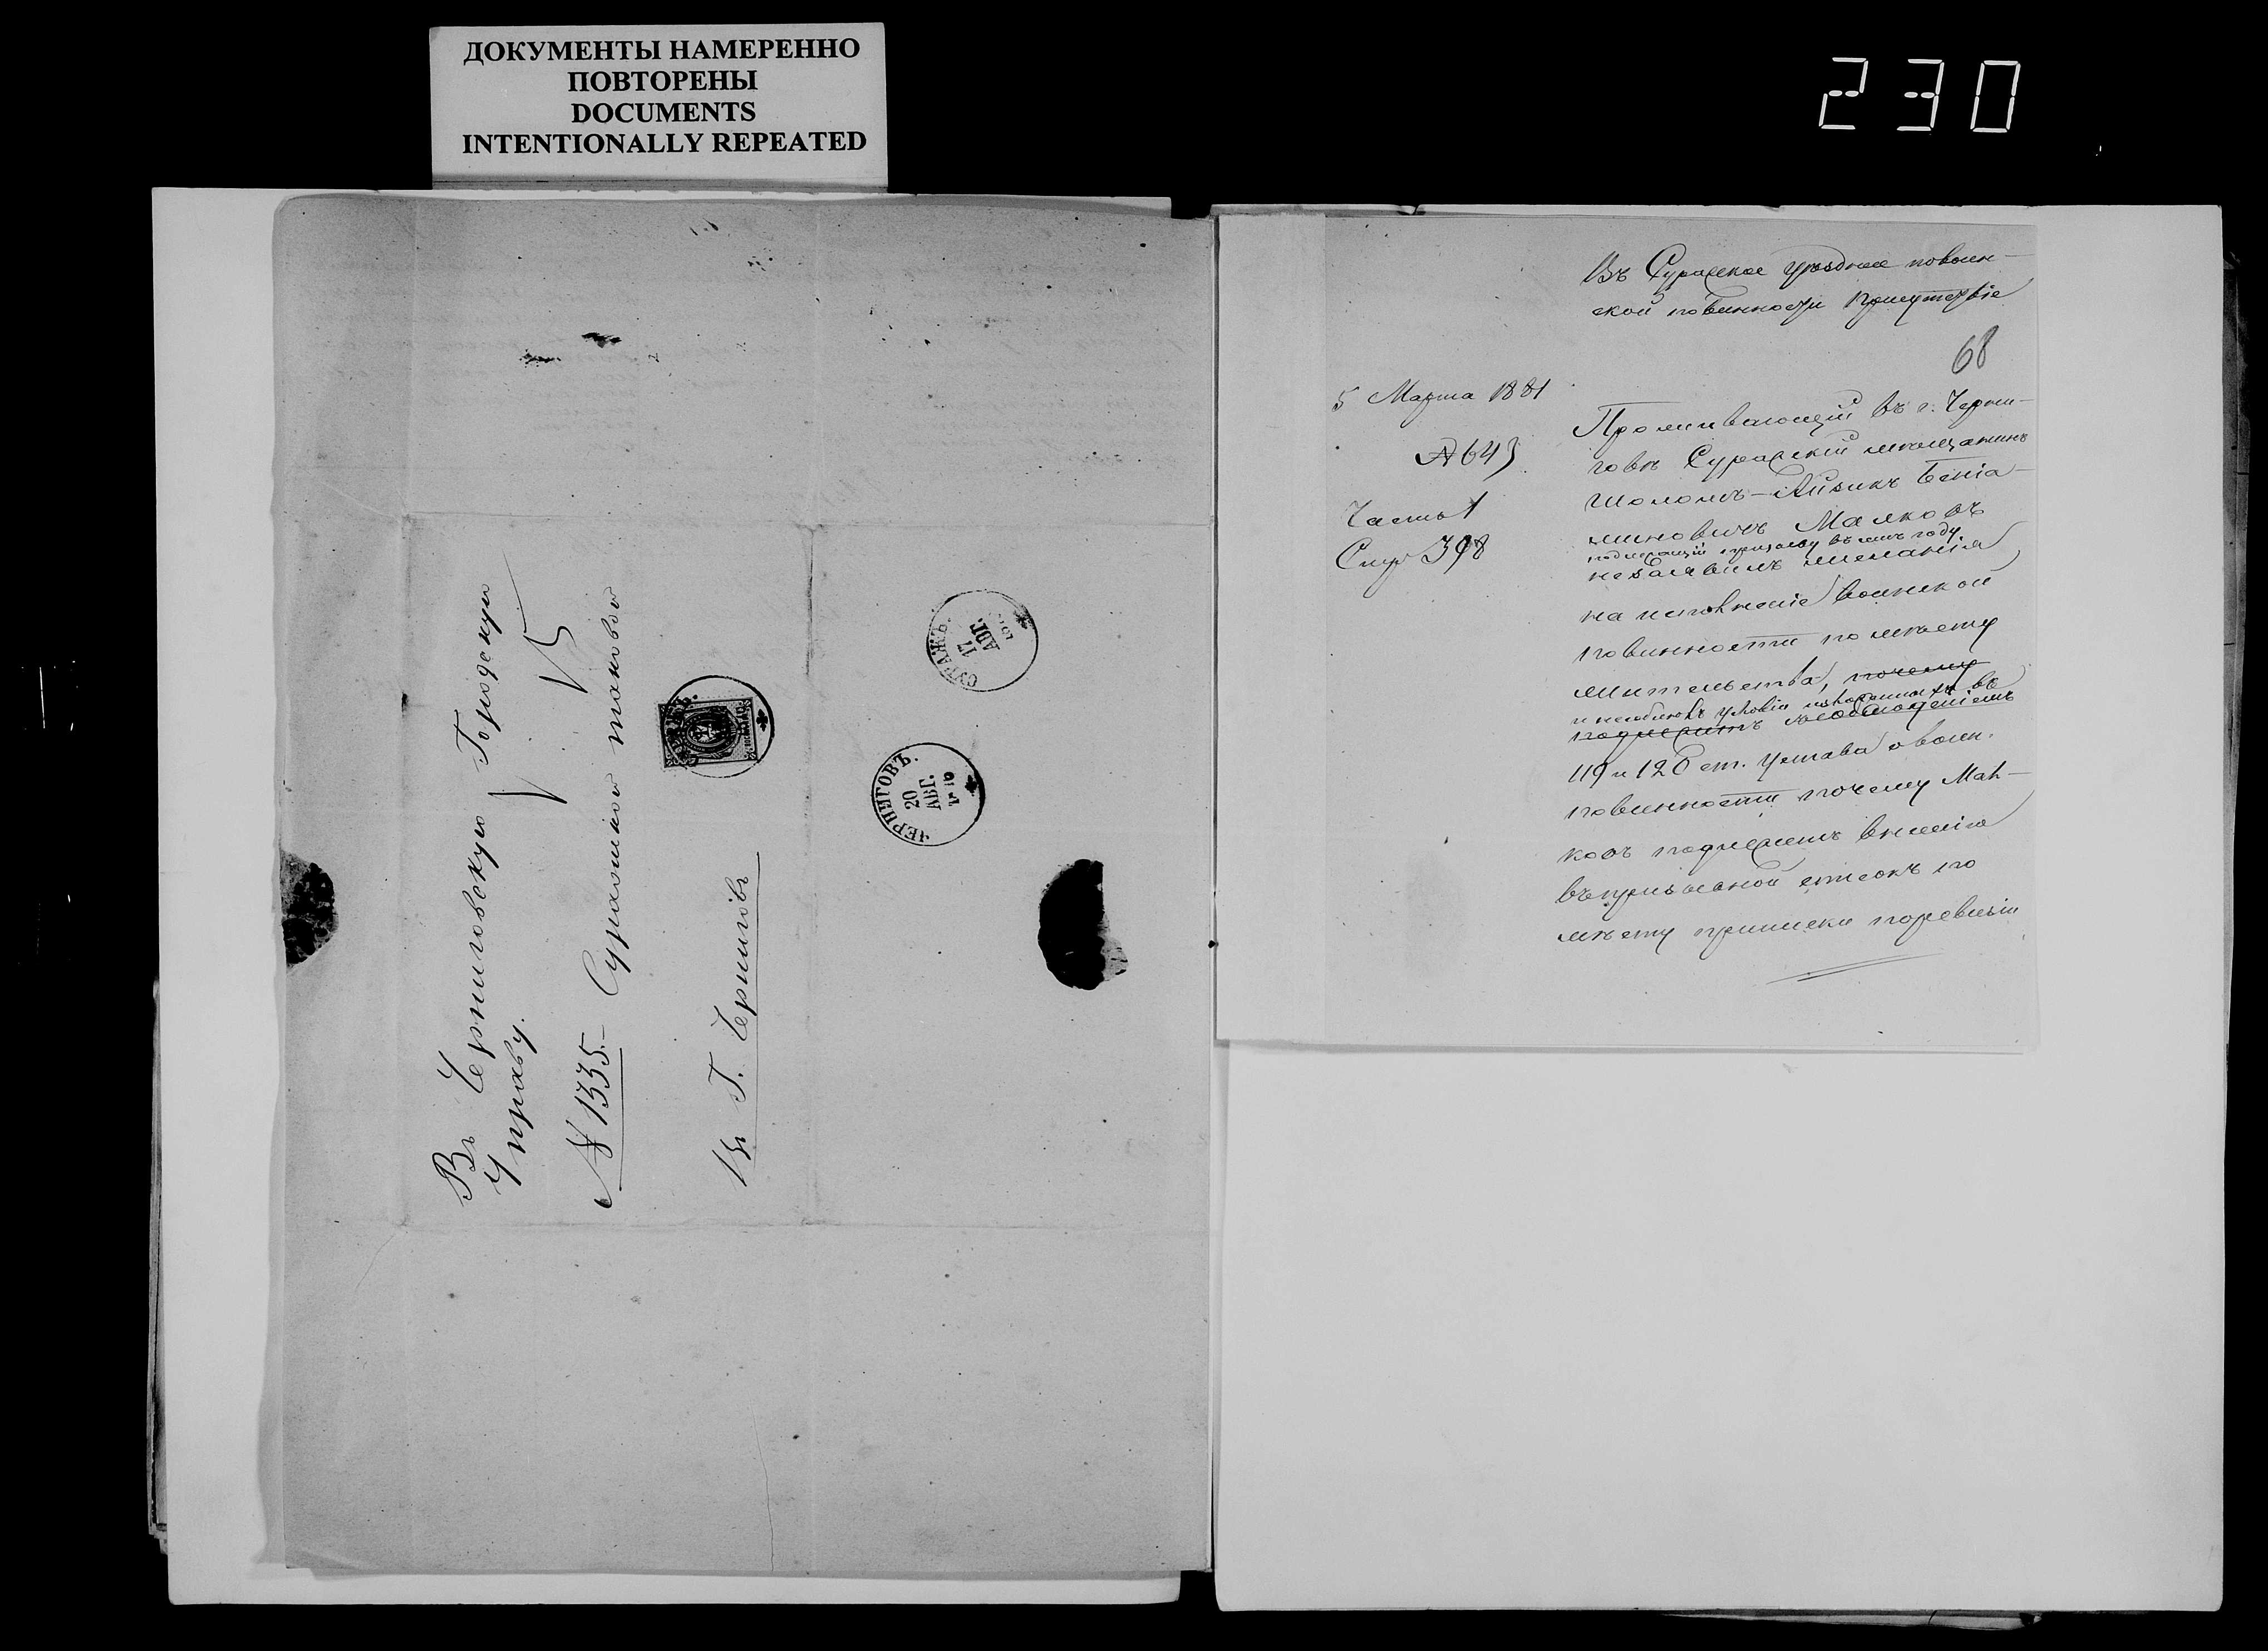 ДОКУМЕНТЫ НАМЕРЕННО
ПОВТОРЕНЫ
DOCUMENTS
INTENTIONALLY REPEATED
230
Въ Черниговскую Городскую
Управу.
№ 1335.
Въ Г. Черниговъ
СУРАЖЪ.
17
АВГ.
ЧЕРНИГОВЪ.
20
АВГ.
Въ Суражское уѣздное повоин-
ской повинности Присутствіе
68
5 Марта 1881
№ 643
Часть 1
Стр 398
Проживающій въ г. Черни-
говѣ Суражскій мѣщанинъ
Шоломъ-Айзикъ Беніа-
миновичъ Маньковъ
подлежащій призыву въ семъ году
незаявилъ желанія
на исполненіе воинской
повинности по мѣсту
жительства, почему
и необлюлъ условія изложенныхъ въ
подлежитъ несоблюденіемъ
119 и 126 ст. Устава о воин.
повинности почему Мань-
ковъ подлежитъ внесенію
въ призывной списокъ по
мѣсту приписки по ревизіи